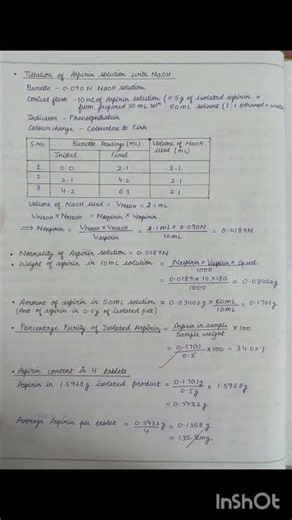 • Titration of Aspirin solution with NaOH
Burette - 0.090 N NaOH solution
Conical flask - 10 mL of Aspirin solution (0.5g of isolated aspirin +
from prepared 50 mL soln 50 mL solvent (1:1 ethanol + water)
Indicator - Phenolphthalein
Colour change - Colourless to Pink
S.No. Burette Readings (mL) Volume of NaOH used (mL)
Initial Final
1. 0.0 2.1 2.1
2. 2.1 4.2 2.1
3. 4.2 6.3 2.1
Volume of NaOH used = VNaOH = 2.1 mL
VNaOH × NNaOH = NAspirin × VAspirin
⇒ NAspirin = VNaOH × NNaOH / VAspirin = 2.1 mL × 0.090N / 10mL = 0.0189N
• Normality of Aspirin solution = 0.0189N
• Weight of aspirin in 10mL solution = NAspirin × VAspirin × G.eq.wt / 1000
= 0.0189 × 10 × 180 / 1000 = 0.03402g
• Amount of aspirin in 50mL solution = 0.03402g × 50mL / 10mL = 0.1701g
(Amt of aspirin in 0.5g of isolated pdt)
• Percentage Purity of Isolated Aspirin = Aspirin in sample / Sample weight × 100
= 0.1701 / 0.5 × 100 = 34.02%
• Aspirin content in 4 tablets
Aspirin in 1.5968g isolated product = 0.1701g / 0.5g × 1.5968g
= 0.5432g
Average Aspirin per tablet = 0.5432g / 4 = 0.1358g
= 135.8mg
InShOt